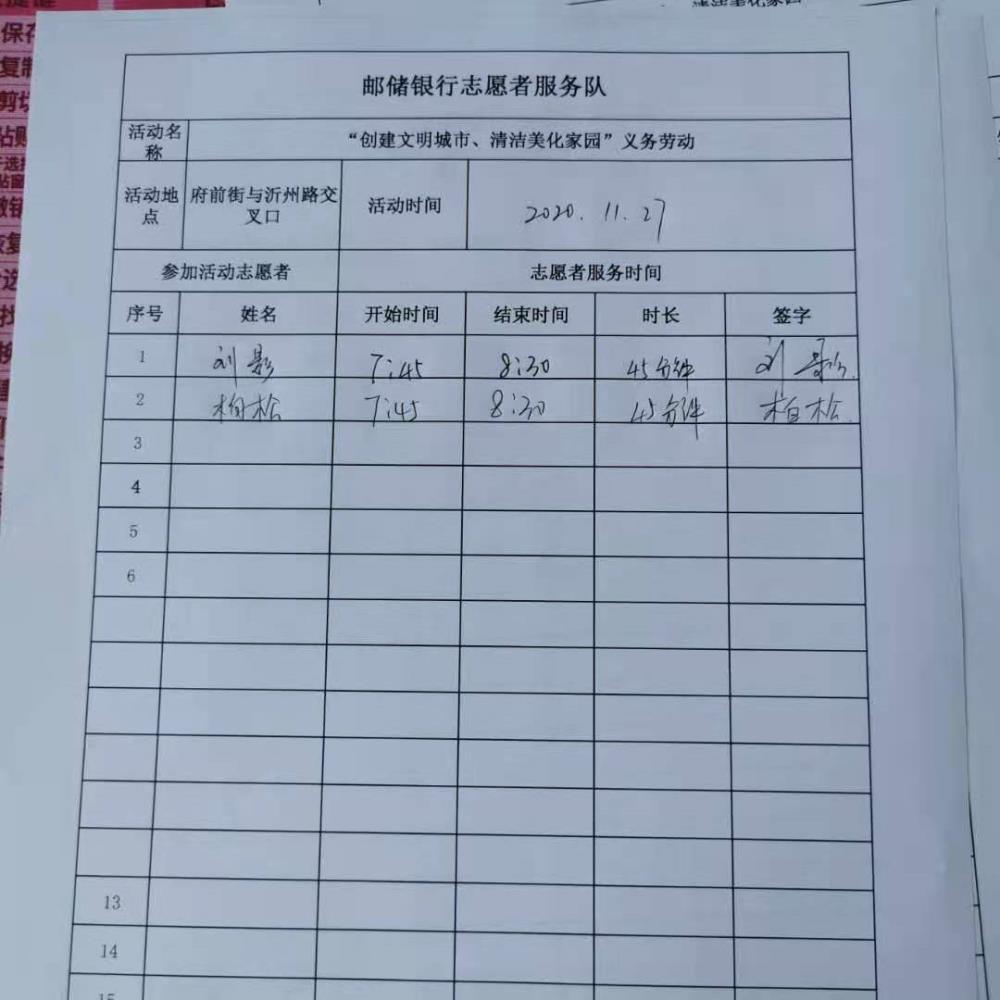 清洁美化家园
邮储银行志愿者服务队
活动名称 “创建文明城市、清洁美化家园”义务劳动
活动地点 府前街与沂州路交叉口 活动时间 2020.11.27
参加活动志愿者 志愿者服务时间
序号 姓名 开始时间 结束时间 时长 签字
1 刘影 7:45 8:30 45分钟 刘影
2 柏松 7:45 8:30 45分钟 柏松
3
4
5
6
13
14
15
保存
复制
剪切
粘贴